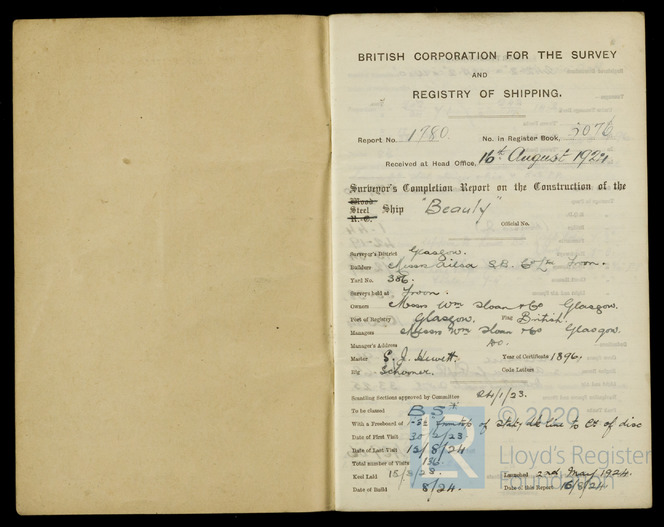 BRITISH CORPORATION FOR THE SURVEY
AND
REGISTRY OF SHIPPING.
Report No. 1780. No. in Register Book, 3076
Received at Head Office, 16th August 1924
Surveyor's Completion Report on the Construction of the
Wood
Steel Ship "Beauly"
R.-C.
Official No.
Surveyor's District Glasgow.
Builders Messrs Ailsa S.B. Co Ltd Troon.
Yard No. 386.
Surveys held at Troon.
Owners Messrs Wm Sloan & Co Glasgow.
Port of Registry Glasgow. Flag British.
Managers Messrs Wm Sloan & Co Glasgow.
Manager's Address Do.
Master S. J. Hewett. Year of Certificate 1896.
Rig Schooner. Code Letters
Scantling Sections approved by Committee 24/1/23.
To be classed B S *
With a Freeboard of from top of stat. dk line to Ct of disc
Date of First Visit 30/2/23
Date of Last Visit 12/8/24
Total number of Visits 136.
Keel Laid 15/8/23. Launched 2nd May 1924.
Date of Build 8/24. Date of this Report 16/8/24.
© 2020
LR
Lloyd's Register
Foundation